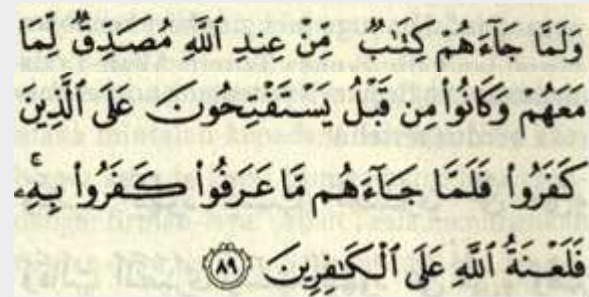 وَلَمَّا جَآءَهُمْ كِتَٰبٌ مِّنْ عِندِ ٱللَّهِ مُصَدِّقٌ لِّمَا
مَعَهُمْ وَكَانُوا۟ مِن قَبْلُ يَسْتَفْتِحُونَ عَلَى ٱلَّذِينَ
كَفَرُوا۟ فَلَمَّا جَآءَهُم مَّا عَرَفُوا۟ كَفَرُوا۟ بِهِۦ ۚ
فَلَعْنَةُ ٱللَّهِ عَلَى ٱلْكَٰفِرِينَ ﴿٨٩﴾